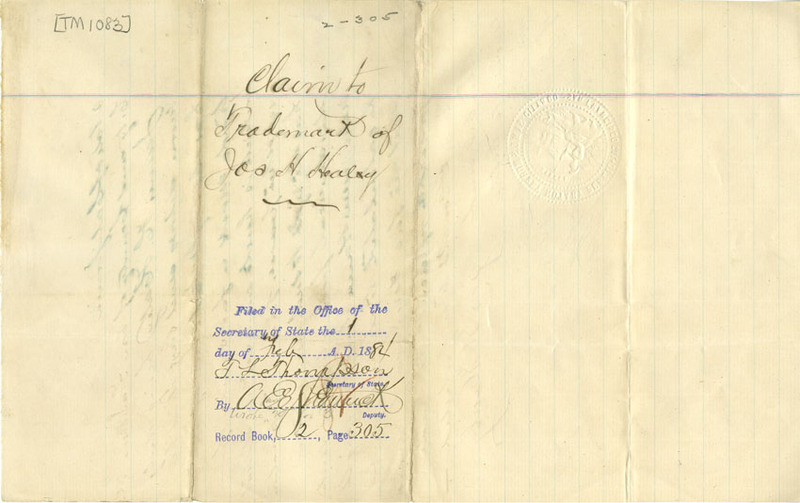 [TM1083]
2-305
Claim to
Trademark of
Jos H Healey
Filed in the Office of the
Secretary of State the 1
day of Feb A.D. 1884
T L Thompson
Secretary of State
By A E
Deputy.
Record Book, 2, Page 305